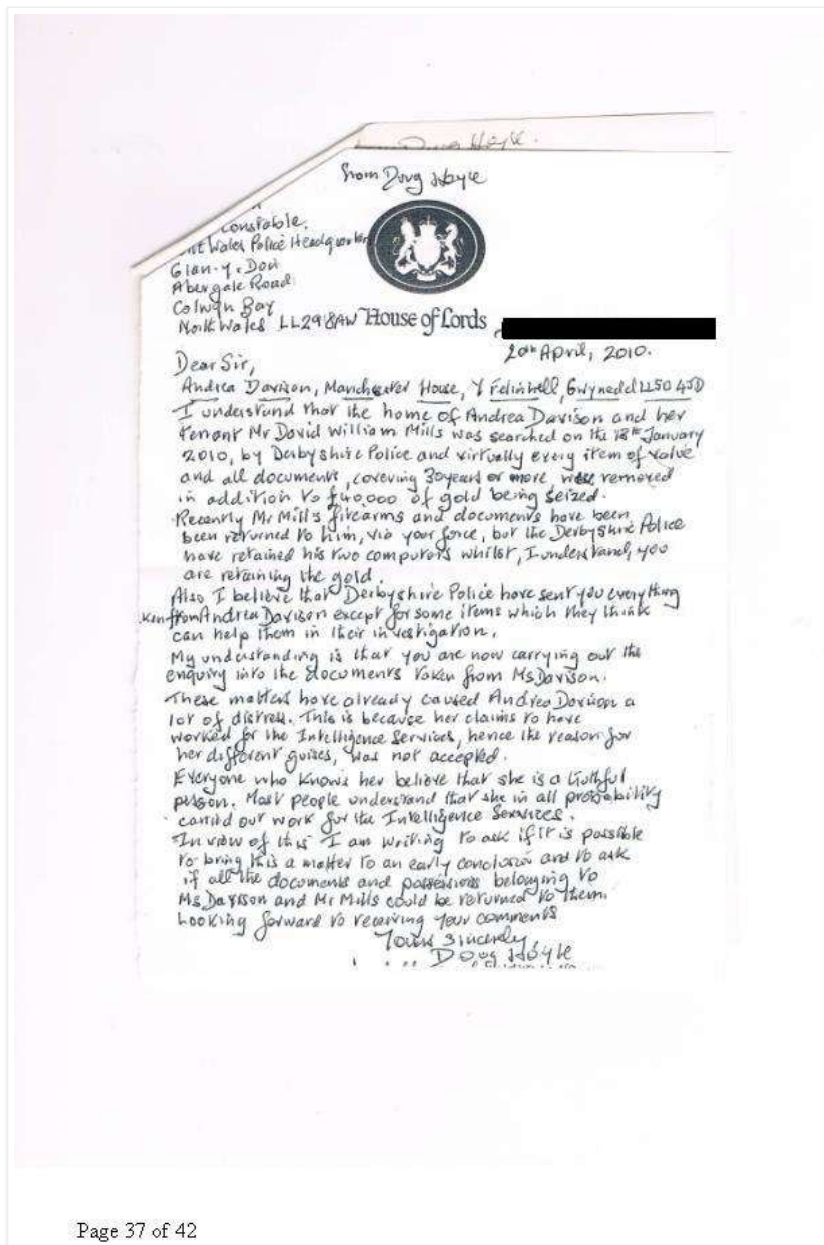 Doug Hoyle.
from Doug Hoyle
Constable.
Wales Police Headquarters
Glan-y-Don
Abergale Road
Colwyn Bay
North Wales LL29 8AW House of Lords
20th April, 2010.
Dear Sir,
Andrea Davison, Manchester House, Y Felinhell, Gwynedd LL50 4JD
I understand that the home of Andrea Davison and her
tenant Mr David William Mills was searched on the 13th January
2010, by Derbyshire Police and virtually every item of value
and all documents, covering 30 years or more, were removed
in addition to £40,000 of gold being seized.
Recently Mr Mills firearms and documents have been
been returned to him, via your force, but the Derbyshire Police
have retained his two computers whilst, I understand, you
are retaining the gold.
Also I believe that Derbyshire Police have sent you everything
ken from Andrea Davison except for some items which they think
can help them in their investigation.
My understanding is that you are now carrying out the
enquiry into the documents taken from Ms Davison.
These matters have already caused Andrea Davison a
lot of distress. This is because her claims to have
worked for the Intelligence Services, hence the reason for
her different guises, was not accepted.
Everyone who knows her believe that she is a truthful
person. Most people understand that she in all probability
carried out work for the Intelligence Services.
In view of this I am writing to ask if it is possible
to bring this a matter to an early conclusion and to ask
if all the documents and possessions belonging to
Ms Davison and Mr Mills could be returned to them.
Looking forward to receiving your comments
Yours sincerely,
Doug Hoyle
Page 37 of 42